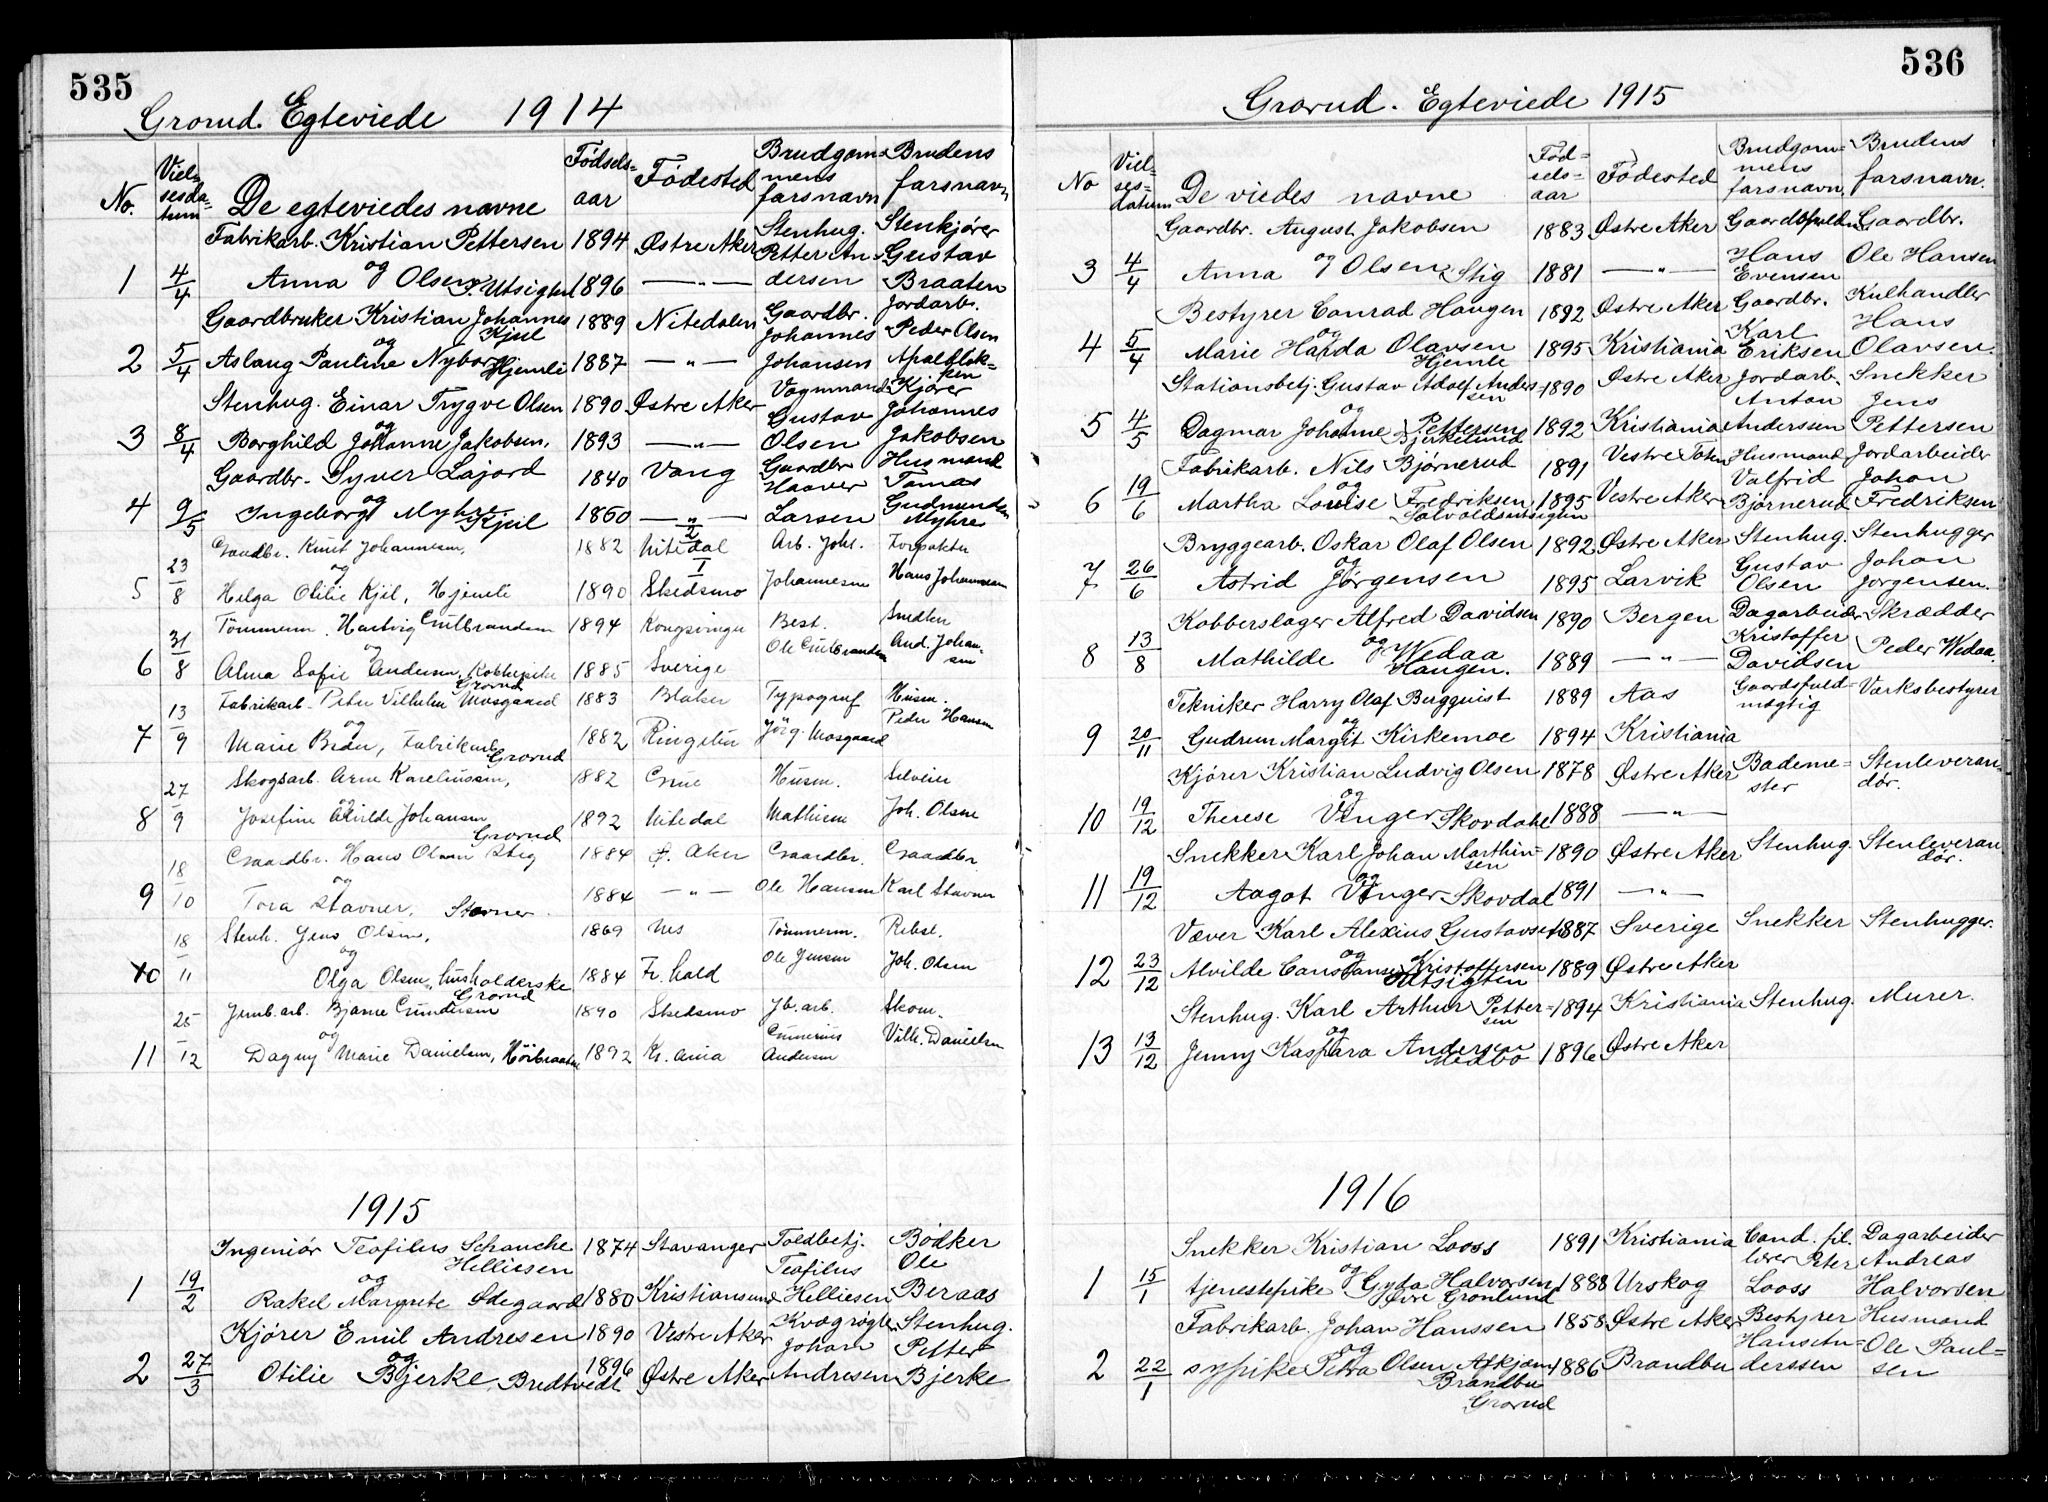 535
Grorud. Egteviede 1914
No. Vielsesdatum De egteviedes navne Fødselsaar Fødested Brudgommens farsnavn Brudens farsnavn
Fabrikarb. Kristian Pettersen 1894 Østre Aker Stenhug. Stenkjører
og Petter An- Gustav
1 4/4 Anna Olsen, Utsigten 1896 —"— dersen Braaten
Gaardbruker Kristian Johannes 1889 Nitedalen Gaardbr. Jordarb.
Kjul Johannes Peder Olsen
og
2 5/4 Aslaug Pauline Nybor Hjemli 1887 —"— Johansen Apalløkken
Stenhug. Einar Trygve Olsen 1890 Østre Aker Vognmand Kjører
og Gustav Johannes
3 8/4 Borghild Johanne Jakobsen. 1893 —"— Olsen Jakobsen
Gaardbr. Syver Lajord 1840 Vang Gaardbr Husmand
og Haaver Tomas
4 9/5 Ingeborg Myhre Kjul 1860 —"— Larsen Gudmundsen Myhre
Gaardbr. Knut Johannesen, 1882 Nitedal Arb. Joh. Forpakter
og
5 23/8 Helga Otilie Kjil, Hjemli 1890 Skedsmo Johannesen Hans Johannesen
Tømmerm. Hartvig Gulbrandsen 1894 Kongsvinger Best. Smeden
og Ole Gulbrandsen And. Johansen
6 31/8 Alma Sofie Andersen, Grorud 1885 Sverige
Fabrikarb. Peter Vilhelm Mosgaard 1883 Blaker Typograf Husm.
og Peder Hansen
7 13/9 Marie Braa, Fabrikarb. Grorud 1882 Ringebu Jörg. Mosgaard
Skogsarb. Arne Kareliussen, 1882 Grue Husm. Selveier
og
8 27/9 Josefine Alvilde Johansen Grorud 1892 Nitedal Mathisen Joh. Olsen
Gaardbr. Hans Olsen Stig 1884 Ø. Aker Gaardbr. Gaardbr.
og
9 18/10 Tora Stavner, Stovner. 1884 —"— Ole Hansen Karl Stavner
Stenh. Jens Olsen, 1869 Nes Tømmerm. Rebsl.
og Ole Jensen Joh. Olsen
10 18/11 Olga Olsen, husholderske Grorud 1884 Fr. hald
Jernb.arb. Bjarne Gundersen 1890 Skedsmo Jb. arb. Skom.
og Gunerius Vilh. Danielsen
11 25/12 Dagny Marie Danielsen, Höibraaten 1892 Kr. ania Andersen
1915
Ingeniør Teofilus Schanche 1874 Stavanger Toldbetj. Bødker
Helliesen Teofilus Ole
og
1 19/2 Rakel Margrete Ødegaard 1880 Kristiansund Helliesen Beraas
Kjører Emil Andresen 1890 Vestre Aker Kvægrøgter Stenhug.
og Johan Petter
2 27/3 Otilie Bjerke, Bredtvedt 1896 Østre Aker Andresen Bjerke
536
Grorud. Egteviede 1915
No Vielsesdatum De viedes navne Fødselsaar Fødested Brudgommens farsnavn, Brudens farsnavn.
Gaardbr. August Jakobsen 1883 Østre Aker Gaardbr.
og Hans Ole Hansen
3 4/4 Anna Olsen Stig 1881 —"— Evensen
Bestyrer Conrad Haugen 1892 Østre Aker Gaardbr. Kulhandler
og Karl Hans
4 5/4 Marie Harda Olavsen Hjemle 1895 Kristiania Eriksen Olavsen.
Stationsbetj. Gustav Adolf Andersen 1890 Østre Aker Jordarb. Snekker
og Anton Jens
5 4/5 Dagmar Johanne Pettersen Bjerkelund 1892 Kristiania Anderssen Pettersen
Fabrikarb. Nils Bjørnerud 1891 Vestre Toten Husmand Jordarbeider
og Valfrid Johan
6 19/6 Martha Lovise Fredriksen 1895 Vestre Aker Bjørnerud Fredriksen
Bryggearb. Oskar Olaf Olsen 1892 Østre Aker Stenhug. Stenhugger
og Gustav Johan
7 26/6 Astrid Jørgensen 1895 Larvik Olsen Jørgensen.
Kobberslager Alfred Davidsen 1890 Bergen Dagarbeider Skrædder
og Kristoffer
8 13/8 Mathilde Wedaa Haugen. 1889 —"— Davidsen Peder Wedaa.
Tekniker Harry Olaf Bergquist 1889 Aas Gaardsfuldmægtig Værksbestyrer
og
9 20/11 Gudrun Margit Kirkemoe 1894 Kristiania
Kjører Kristian Ludvig Olsen 1878 Østre Aker Bademester Stenleverandør.
og
10 19/12 Therese Vinger Skovdahl 1888 —"—
Snekker Karl Johan Marthinsen 1890 Østre Aker Stenhug. Stenleverandør.
og
11 19/12 Aagot Vinger Skovdal 1891 —"—
Væver Karl Alexius Gustavsen 1887 Sverige Snekker Stenhugger.
og
12 23/12 Alvilde Constanse Kristoffersen Utsigten 1889 Østre Aker
Stenhug. Karl Arthur Pettersen 1894 Kristiania Stenhug. Murer.
og
13 13/12 Jenny Kaspara Andersen Medbo 1896 Østre Aker
1916
Snekker Kristian Looss 1891 Kristiania Cand. fil. Dagarbeider
og lærer Peter Andreas
1 15/1 tjenestepike Gyda Halvorsen Øvre Grønlund 1888 Urskog Looss Halvorsen
Fabrikarb. Johan Hanssen 1858 Østre Aker Bestyrer Husmand
og Hans An- Ole Paul-
2 22/1 sypike Petra Olsen Brandbu Grorud 1886 Brandbu derssen sen